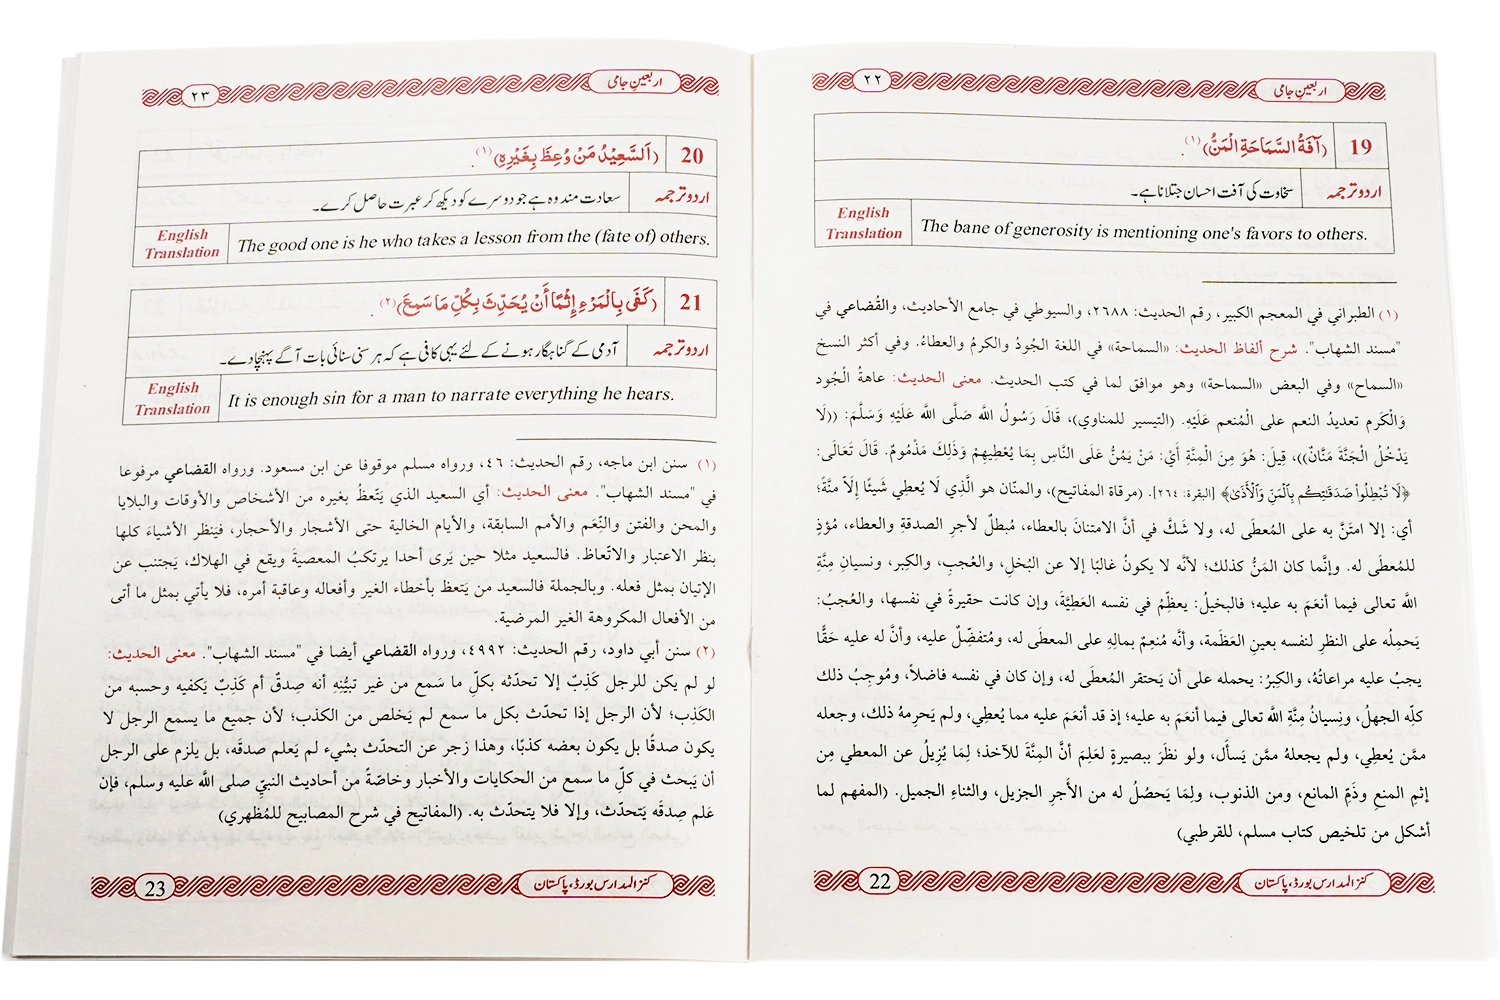 اربعینِ جامی
٢٢
19
(آفَةُ السَّمَاحَةِ الْمَنُّ)(١).
اردو ترجمہ
سخاوت کی آفت احسان جتلانا ہے۔
English Translation
The bane of generosity is mentioning one's favors to others.
(١) الطبراني في المعجم الكبير، رقم الحديث: ٢٦٨٨، والسيوطي في جامع الأحاديث، والقُضاعي في
"مسند الشهاب". شرح ألفاظ الحديث: «السماحة» في اللغة الجُودُ والكرمُ والعطاءُ. وفي أكثر النسخ
«السماح» وفي البعض «السماحة» وهو موافق لما في كتب الحديث. معنى الحديث: عاهةُ الْجُود
وَالْكَرم تعديدُ النعم على الْمُنعم عَلَيْهِ. (التيسير للمناوي)، قَالَ رَسُولُ اللَّه صَلَّى اللَّه عَلَيْهِ وَسَلَّمَ: ((لَا
يَدْخُلُ الْجَنَّةَ مَنَّانٌ))، قِيلَ: هُوَ مِنَ الْمِنَّةِ أَيْ: مَنْ يَمُنُّ عَلَى النَّاسِ بِمَا يُعْطِيهِمْ وَذَلِكَ مَذْمُومٌ. قَالَ تَعَالَى:
﴿لَا تُبْطِلُوا صَدَقَٰتِكُم بِالْمَنِّ وَالْأَذَىٰ﴾ [البقرة: ٢٦٤]. (مرقاة المفاتيح)، والمنّان هو الَّذِي لَا يُعطِي شَيئًا إِلاَّ مِنَّةً؛
أي: إلا امتَنَّ به على المُعطَى له، ولا شَكَّ في أنَّ الامتنانَ بالعطاء، مُبطلٌ لأجرِ الصدقةِ والعطاء، مُؤذٍ
للمُعطَى له. وإنَّما كان المَنُّ كذلك؛ لأنَّه لا يكونُ غالبًا إلا عن البُخلِ، والعُجبِ، والكِبر، ونسيانِ مِنَّةِ
اللَّه تعالى فيما أنعَمَ به عليه؛ فالبخيلُ: يعظِّمُ في نفسه العَطِيَّةَ، وإن كانت حقيرةً في نفسها، والعُجبُ:
يَحمِلُه على النظرِ لنفسه بعينِ العَظَمة، وأنَّه مُنعِمٌ بمالِهِ على المعطَى له، ومُتفضِّلٌ عليه، وأنَّ له عليه حَقًّا
يجبُ عليه مراعاتُهُ، والكِبرُ: يحمله على أن يَحتقر المُعطَى له، وإن كان في نفسه فاضلاً، ومُوجِبُ ذلك
كلِّه الجهلُ، ونِسيانُ مِنَّةِ اللَّه تعالى فيما أنعَمَ به عليه؛ إذ قد أنعَمَ عليه مما يُعطِي، ولم يَحرِمهُ ذلك، وجعله
ممَّن يُعطِي، ولم يجعلهُ ممَّن يَسأل، ولو نظَرَ ببصيرةٍ لعَلِمَ أنَّ المِنَّةَ للآخذ؛ لِمَا يُزِيلُ عن المعطي مِن
إثمِ المنعِ وذَمِّ المانع، ومن الذنوب، ولِمَا يَحصُلُ له من الأجرِ الجزيل، والثناءِ الجميل. (المفهم لما
أشكل من تلخيص كتاب مسلم، للقرطبي)
کنز المدارس بورڈ، پاکستان
22
اربعینِ جامی
٢٣
20
(اَلسَّعِيْدُ مَنْ وُعِظَ بِغَيْرِهِ)(١).
اردو ترجمہ
سعادت مند وہ ہے جو دوسرے کو دیکھ کر عبرت حاصل کرے۔
English Translation
The good one is he who takes a lesson from the (fate of) others.
21
(كَفَى بِالْمَرْءِ إِثْمًا أَنْ يُحَدِّثَ بِكُلِّ مَا سَمِعَ)(٢).
اردو ترجمہ
آدمی کے گناہگار ہونے کے لئے یہی کافی ہے کہ ہر سنی سنائی بات آگے پہنچا دے۔
English Translation
It is enough sin for a man to narrate everything he hears.
(١) سنن ابن ماجه، رقم الحديث: ٤٦، ورواه مسلم موقوفا عن ابن مسعود. ورواه القضاعي مرفوعا
في "مسند الشهاب". معنى الحديث: أي السعيد الذي يَتَّعظُ بغيره من الأشخاص والأوقات والبلايا
والمحن والفتن والنِّعَم والأمم السابقة، والأيام الخالية حتى الأشجار والأحجار، فيَنظر الأشياءَ كلها
بنظر الاعتبار والاتّعاظ. فالسعيد مثلا حين يَرى أحدا يرتكبُ المعصيةَ ويقع في الهلاك، يَجتنب عن
الإتيان بمثل فعله. وبالجملة فالسعيد من يَتعظ بأخطاء الغير وأفعاله وعاقبة أمره، فلا يأتي بمثل ما أتى
من الأفعال المكروهة الغير المرضية.
(٢) سنن أبي داود، رقم الحديث: ٤٩٩٢، ورواه القضاعي أيضا في "مسند الشهاب". معنى الحديث:
لو لم يكن للرجل كَذِبٌ إلا تحدّثه بكلِّ ما سَمع من غير تبيُّنِهِ أنه صِدقٌ أم كَذِبٌ يَكفيه وحسبه من
الكَذِب؛ لأن الرجل إذا تحدّث بكل ما سمع لم يَخلص من الكذب؛ لأن جميع ما يسمع الرجل لا
يكون صدقًا بل يكون بعضه كذبًا، وهذا زجر عن التحدّث بشيء لم يَعلم صدقَه، بل يلزم على الرجل
أن يَبحث في كلِّ ما سمع من الحكايات والأخبار وخاصّةً من أحاديث النبيِّ صلى اللَّه عليه وسلم، فإن
عَلم صِدقَه يَتحدّث، وإلا فلا يتحدّث به. (المفاتيح في شرح المصابيح للمُظهري)
کنز المدارس بورڈ، پاکستان
23